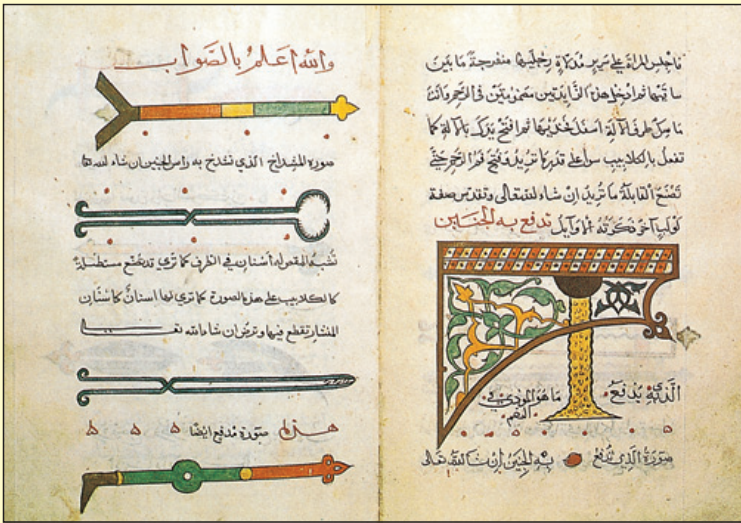 فاجلس المراة على سرير مدلاة رجليها منفرجة ما بين
ساقيها ثم ادخل هذا الزايدتين مضمومتين في الرحم وانت
ماسك طرف الآلة اسفل فخذيها ثم افتح يدك بالآلة كما
تفعل بالكلاليب سوا على قدر ما تريد وفتح فم الرحم حتى
تصنع القابلة ما تريد ان شاء الله تعالى وتقدس صفة
لولب آخر ذكرته الاوايل تدفع به الجنين
الذي يدفع ما هو في
الفم
صورة الذي تدفع به الجنين ان شا الله تعالى
والله اعلم بالصواب
صورة المشداخ الذي تشدخ به راس الجنين ان شاء الله تعا
تشبه المقص له أسنان في الطرف كما ترى قد تصنع مستطيلة
كالكلاليب على هذه الصورة كما ترى لها اسنان كاسنان
المنشار تقطع فيها وترض ان شاء الله تعـ
هذه صورة مدفع ايضا ه ه ه